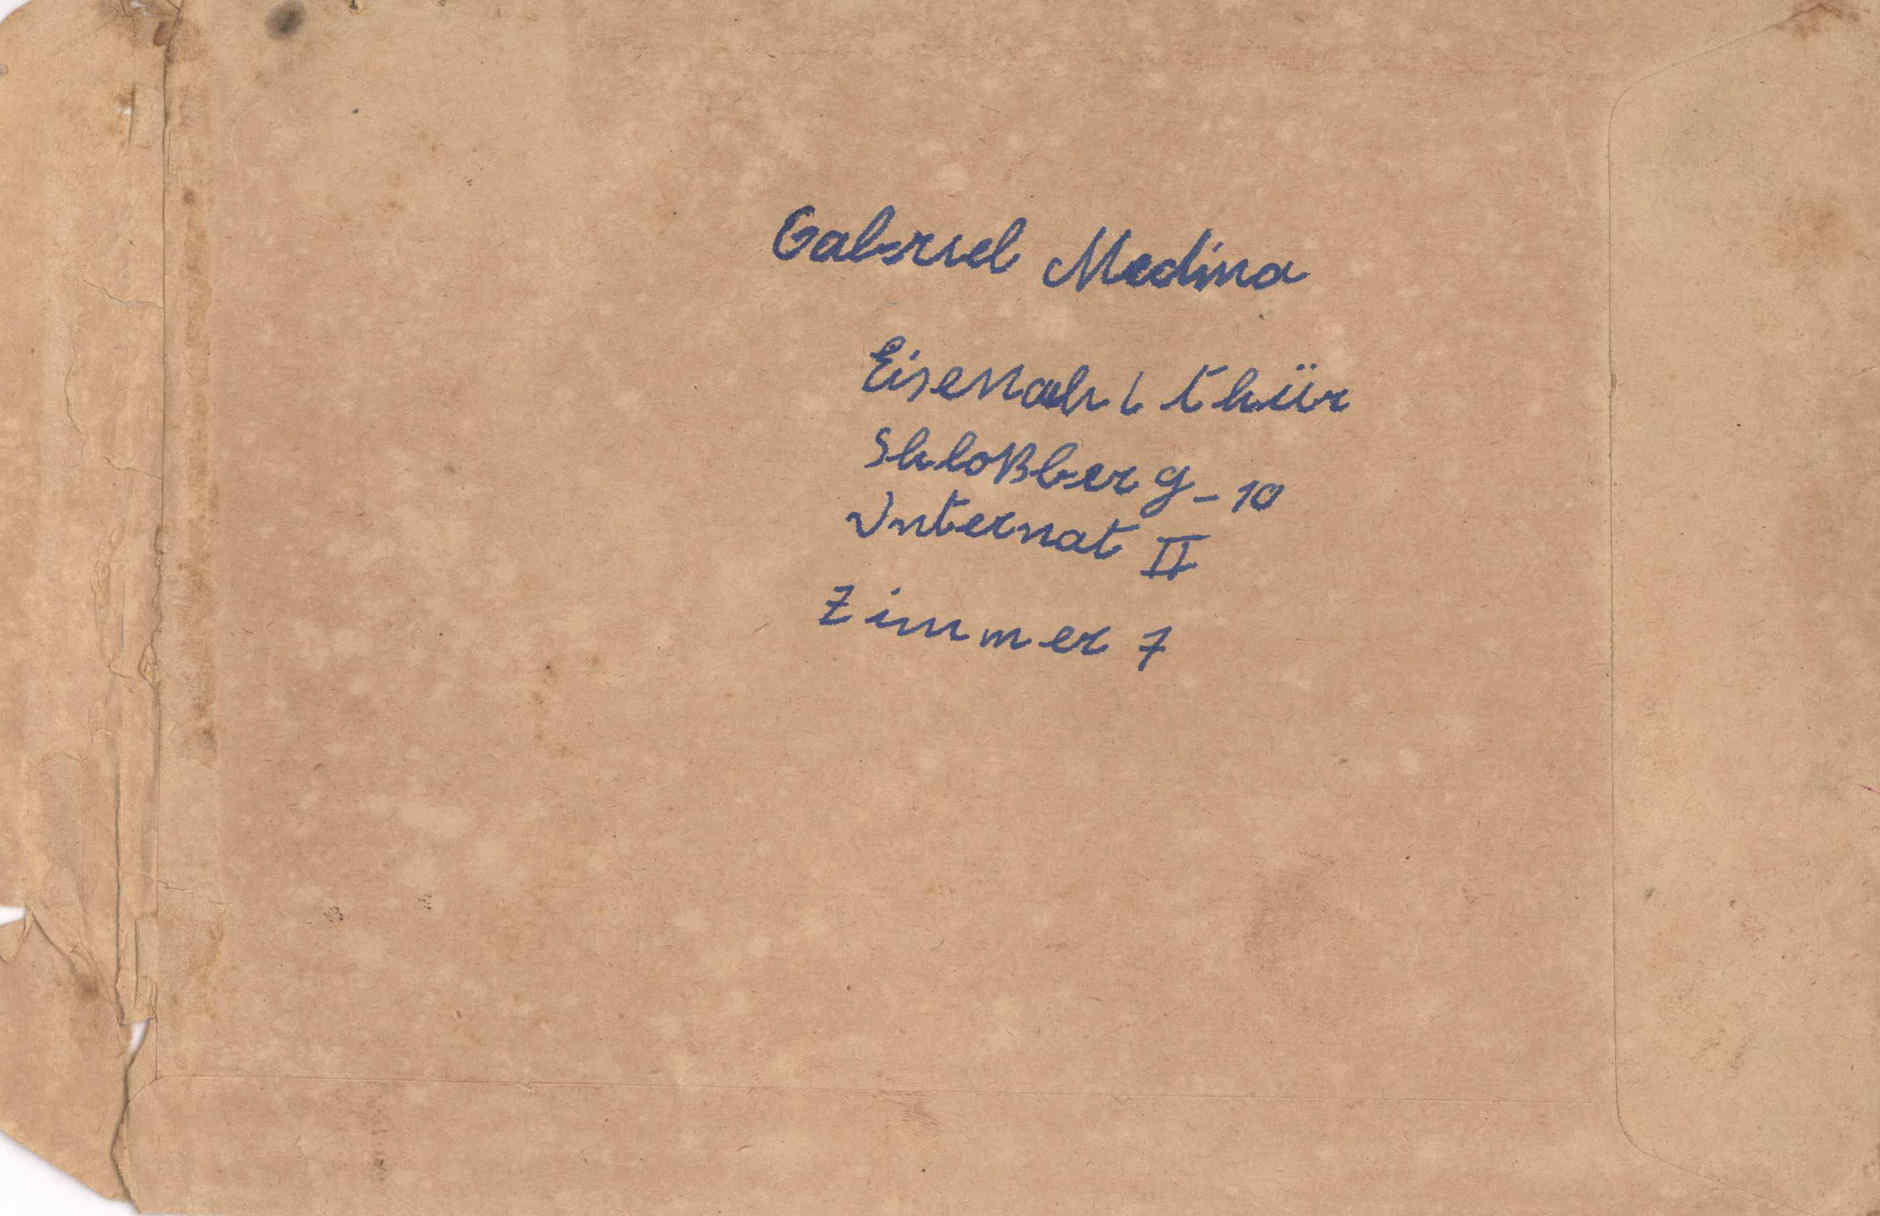 Gabriel Medina
Eisenach / Thür
Shloßberg - 10
Internat II
Zimmer 7